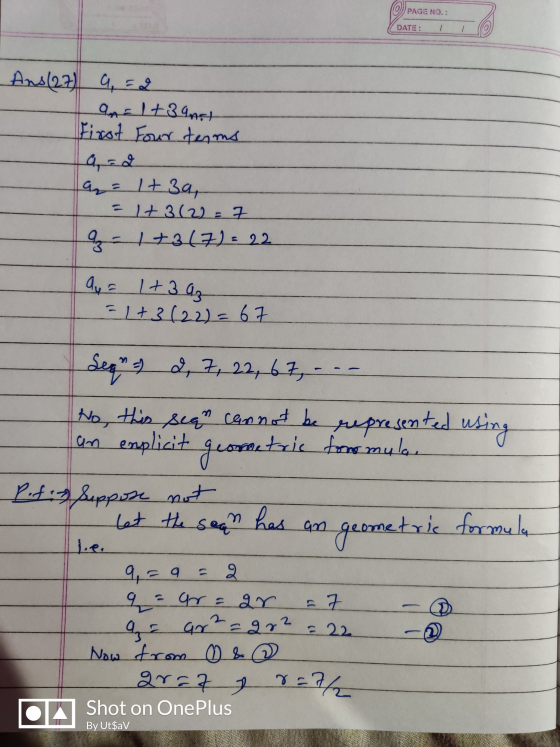 PAGE NO.:
DATE: / /
Ans(27) a₁ = 2
aₙ = 1 + 3aₙ₋₁
First Four terms
a₁ = 2
a₂ = 1 + 3a₁
= 1 + 3(2) = 7
a₃ = 1 + 3(7) = 22
a₄ = 1 + 3 a₃
= 1 + 3(22) = 67
Seqⁿ ⇒ 2, 7, 22, 67, - - -
No, this seqⁿ cannot be represented using
an explicit geometric formula.
P.f:⇒ Suppose not
Let the seqⁿ has an geometric formula
i.e.
a₁ = a = 2
a₂ = ar = 2r = 7 — ①
a₃ = ar² = 2r² = 22 — ②
Now from ① & ②
2r = 7 , r = 7/2
Shot on OnePlus
By Ut$aV